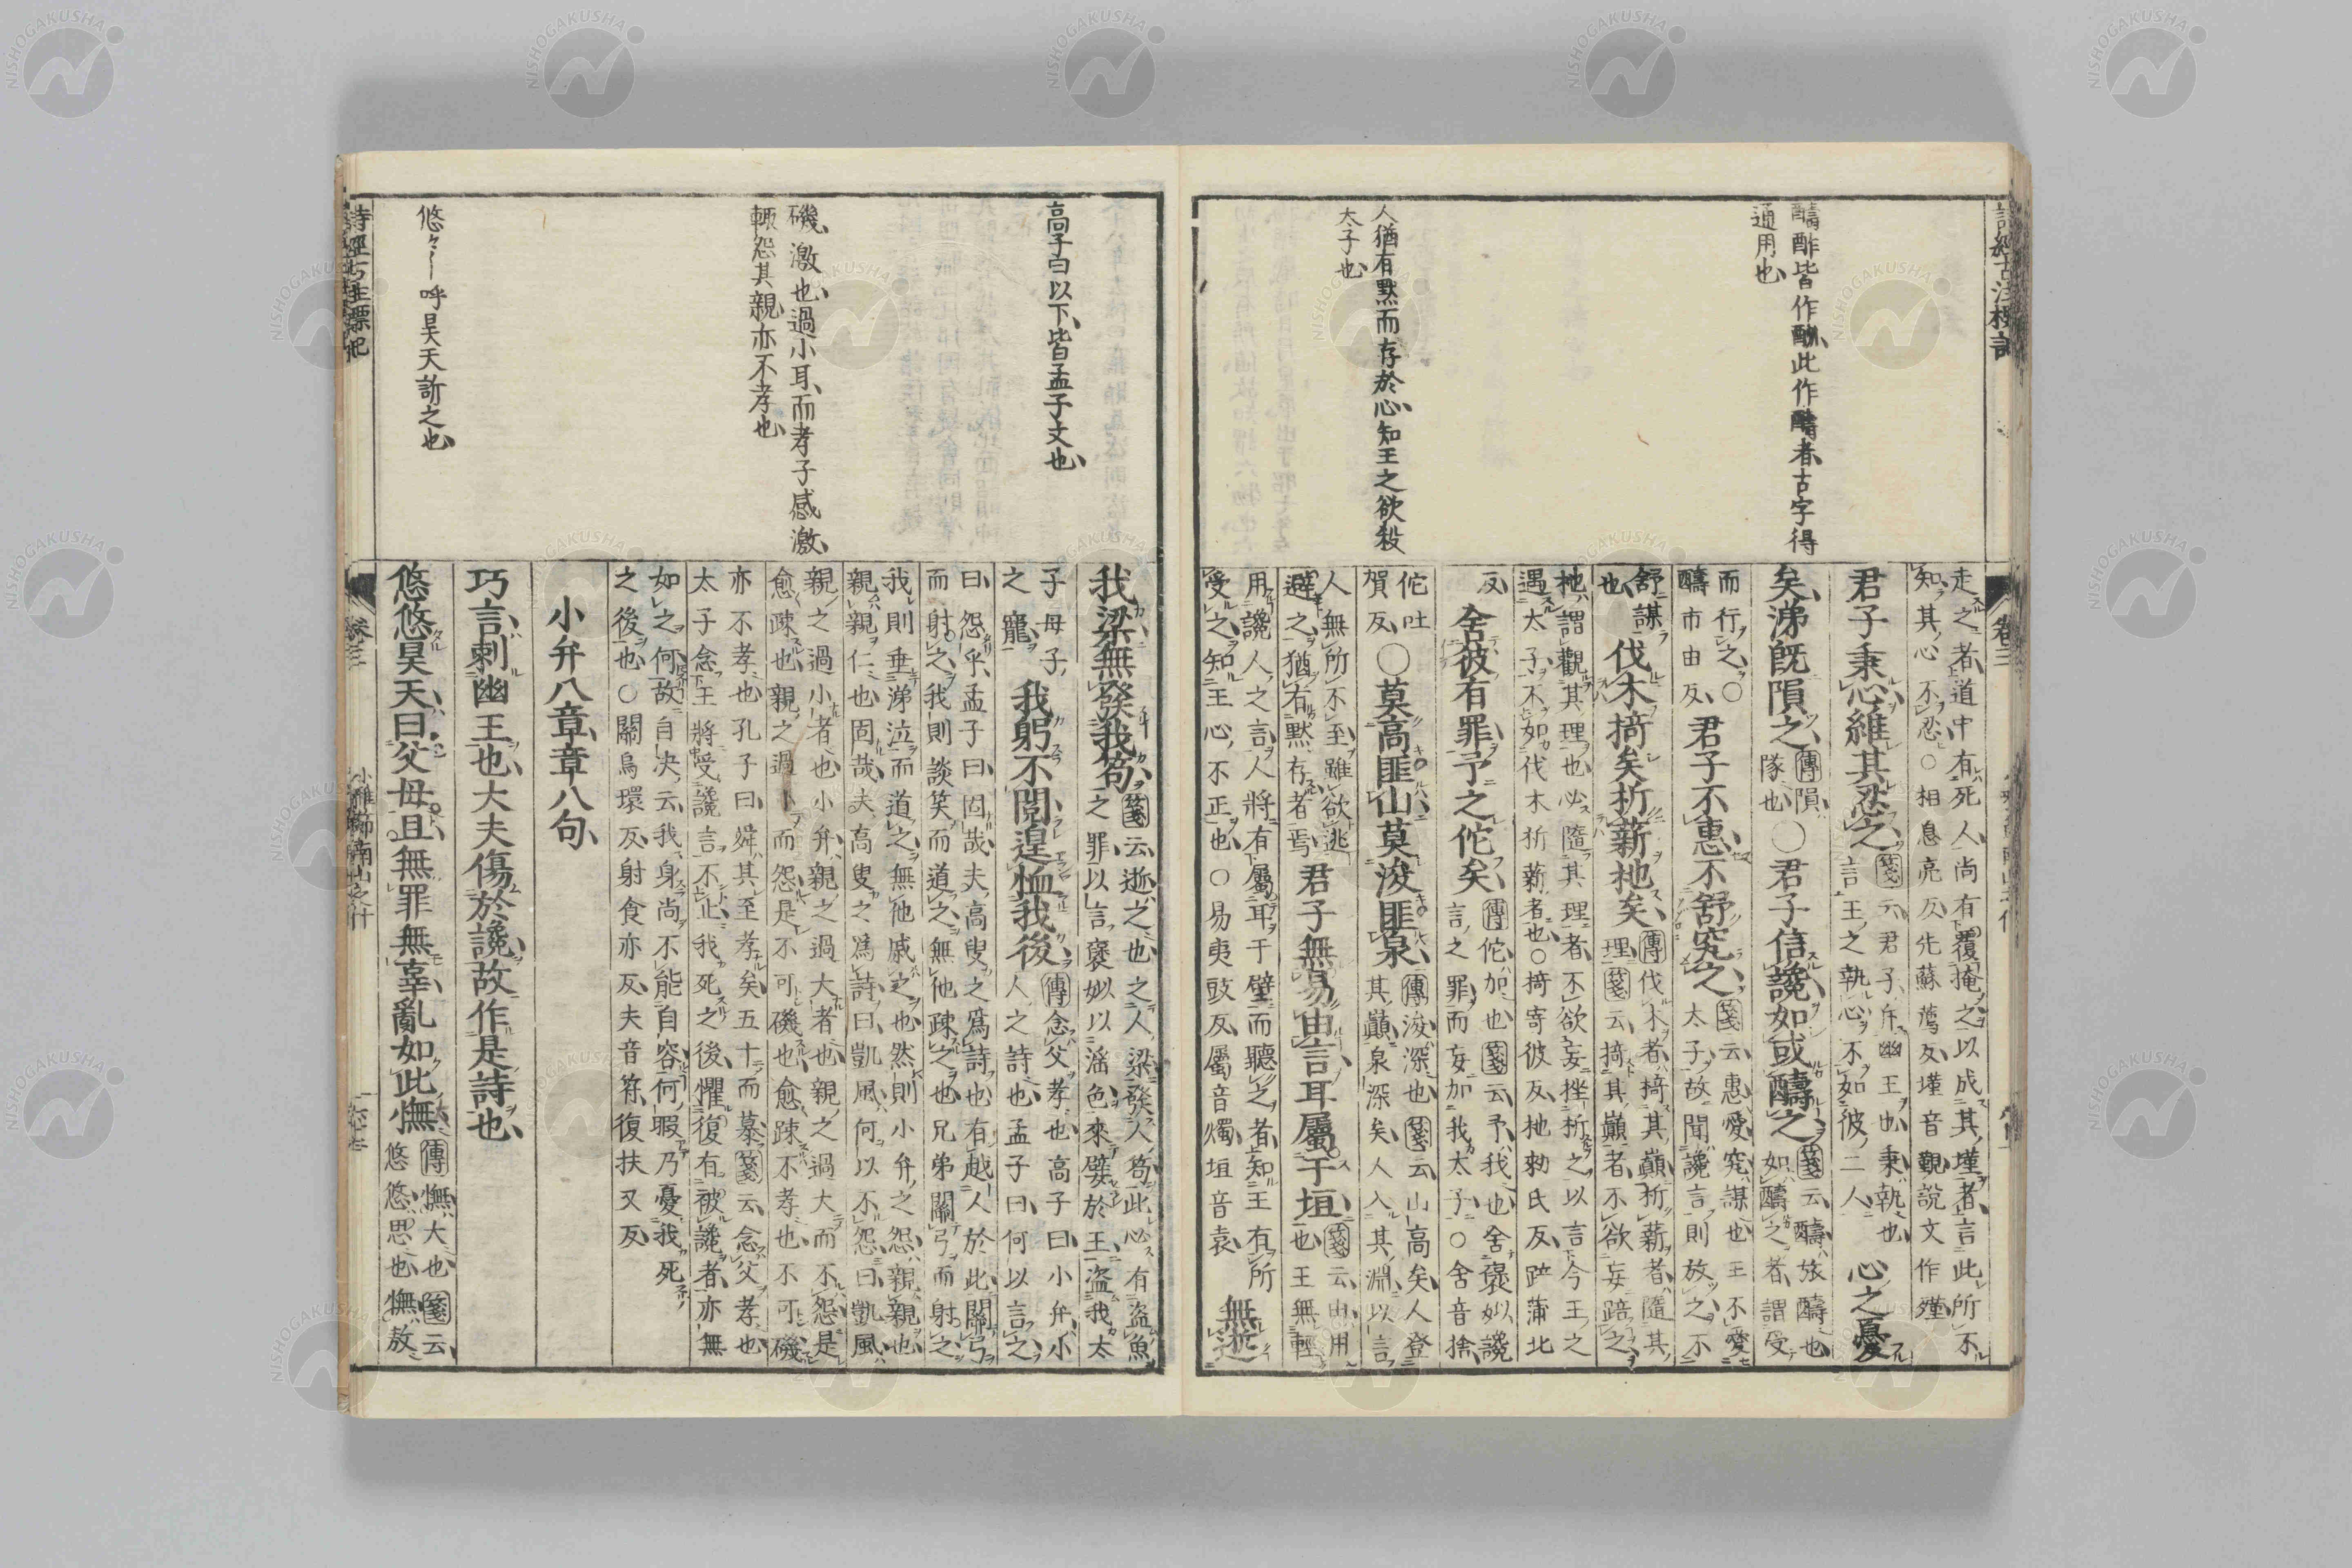 醻酢皆作酬此作醻者古字得
通用也
人猶有默而存於心知王之欲殺
太子也
走之者道中有死人尚有覆掩之以成其墐者言此所不
知其心不忍○相息亮反先蘇薦反墐音覲說文作殣
君子秉心維其忍之箋云君子斥幽王也秉執也
言王之執心不如彼二人
心之憂
矣涕既隕之傳隕
隊也○君子信讒如或醻之箋云醻旅醻也
如醻之者謂受
而行之○
醻市由反君子不惠不舒究之箋云惠愛究謀也王不愛
太子故聞讒言則放之不
舒謀
也伐木掎矣析薪杝矣傳伐木者掎其巔析薪者隨其
理箋云掎其巔者不欲妄踣之
杝謂觀其理也必隨其理者不欲妄挫析之以言今王之
遇太子不如伐木析薪者也○掎寄彼反杝勑氏反踣蒲北
反舍彼有罪予之佗矣傳佗加也箋云予我也舍褒姒讒
言之罪而妄加我太子○舍音捨
佗吐
賀反○莫高匪山莫浚匪泉傳浚深也箋云山高矣人登
其巔泉深矣人入其淵以言
人無所不至雖欲逃
避之猶有默存者焉君子無易由言耳屬于垣箋云由用
也王無輕
用讒人之言人將有屬耳于壁而聽之者知王有所
受之知王心不正也○易夷豉反屬音燭垣音袁
無逝
高子曰以下皆孟子文也
磯激也過小耳而孝子感激
輒怨其親亦不孝也
悠々ー呼昊天訴之也
我梁無發我笱箋云逝之也之人梁發人笱此必有盜魚
之罪以言褒姒以滛色來嬖於王盜我太
子母子
之寵我躬不閱遑恤我後傳念父孝也高子曰小弁小
人之詩也孟子曰何以言之
曰怨乎孟子曰固哉夫高叟之爲詩也有越人於此關弓
而射之我則談笑而道之無他疎之也兄弟關弓而射之
我則垂涕泣而道之無他戚之也然則小弁之怨親親也
親親仁也固哉夫高叟之爲詩曰凱風何以不怨曰凱風
親之過小者也小弁親之過大者也親之過大而不怨是
愈疎也親之過小而怨是不可磯也愈疎不孝也不可磯
亦不孝也孔子曰舜其至孝矣五十而慕箋云念父孝也
太子念王將受讒言不止我死之後懼復有被讒者亦無
如之何故自决云我身尚不能自容何暇乃憂我死
之後也○關烏環反射食亦反夫音符復扶又反
小弁八章章八句
巧言刺幽王也大夫傷於讒故作是詩也
悠悠昊天曰父母且無罪無辜亂如此憮傳憮大也箋云
悠悠思也憮敖